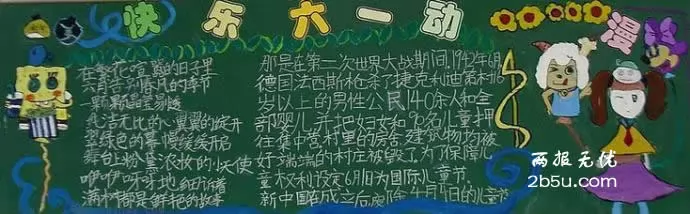 快乐六一动漫
在
的日子里
六月告别春风的季节
一颗颗
纯洁无比的心里翼的旋开
翠绿色的幕慢缓缓开启
舞台上粉墨浓妆的小天使
咿咿呀呀地细诉着
满树都是鲜艳的故事
那是在第二次世界大战期间,1942年6月,
德国法西斯枪杀了捷克利迪策村16
岁以上的男性公民140余人和全
部婴儿,并把妇女和90名儿童押
往集中营,村里的房舍、建筑物均被
好端端的村庄被毁了,为了保障儿
童权利,设定6月1日为国际儿童节,
新中国成立后废除4月4日的儿童节
两报无忧
2b5u.com